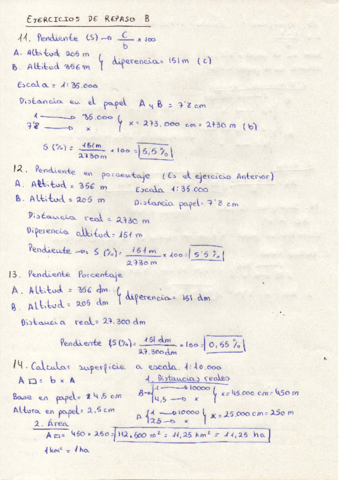 EJERCICIOS DE REPASO B
11. Pendiente (S) → c/b × 100
A. Altitud 205 m
B. Altitud 356 m } diferencia = 151 m (c)
Escala = 1:35.000
Distancia en el papel A y B = 7'8 cm
1 → 35.000
7'8 → x } x = 273.000 cm = 2730 m (b)
S (%) = 151 m / 2730 m × 100 = 5,5 %
12. Pendiente en porcentaje (Es el ejercicio Anterior)
A. Altitud = 356 m Escala 1:35.000
B. Altitud = 205 m Distancia papel = 7'8 cm
Distancia real = 2730 m
Diferencia altitud = 151 m
Pendiente → S (%) = 151 m / 2730 m × 100 = 5'5 %
13. Pendiente Porcentaje
A. Altitud = 356 dm
B. Altitud = 205 dm } diferencia = 151 dm
Distancia real = 27.300 dm
Pendiente (S(%)) = 151 dm / 27.300 dm × 100 = 0,55 %
14. Calcular superficie a escala 1:10.000
A ▭ = b × A
1. Distancias reales
Base en papel = 4,5 cm
B → { 1 → 10000
4,5 → x } x = 45.000 cm = 450 m
Altura en papel = 2,5 cm
A { 1 → 10000
2,5 → x } x = 25.000 cm = 250 m
2. Área
A ▭ = 450 × 250 = 112.500 m² = 11,25 km² = 11,25 ha
1 km² = 1 ha